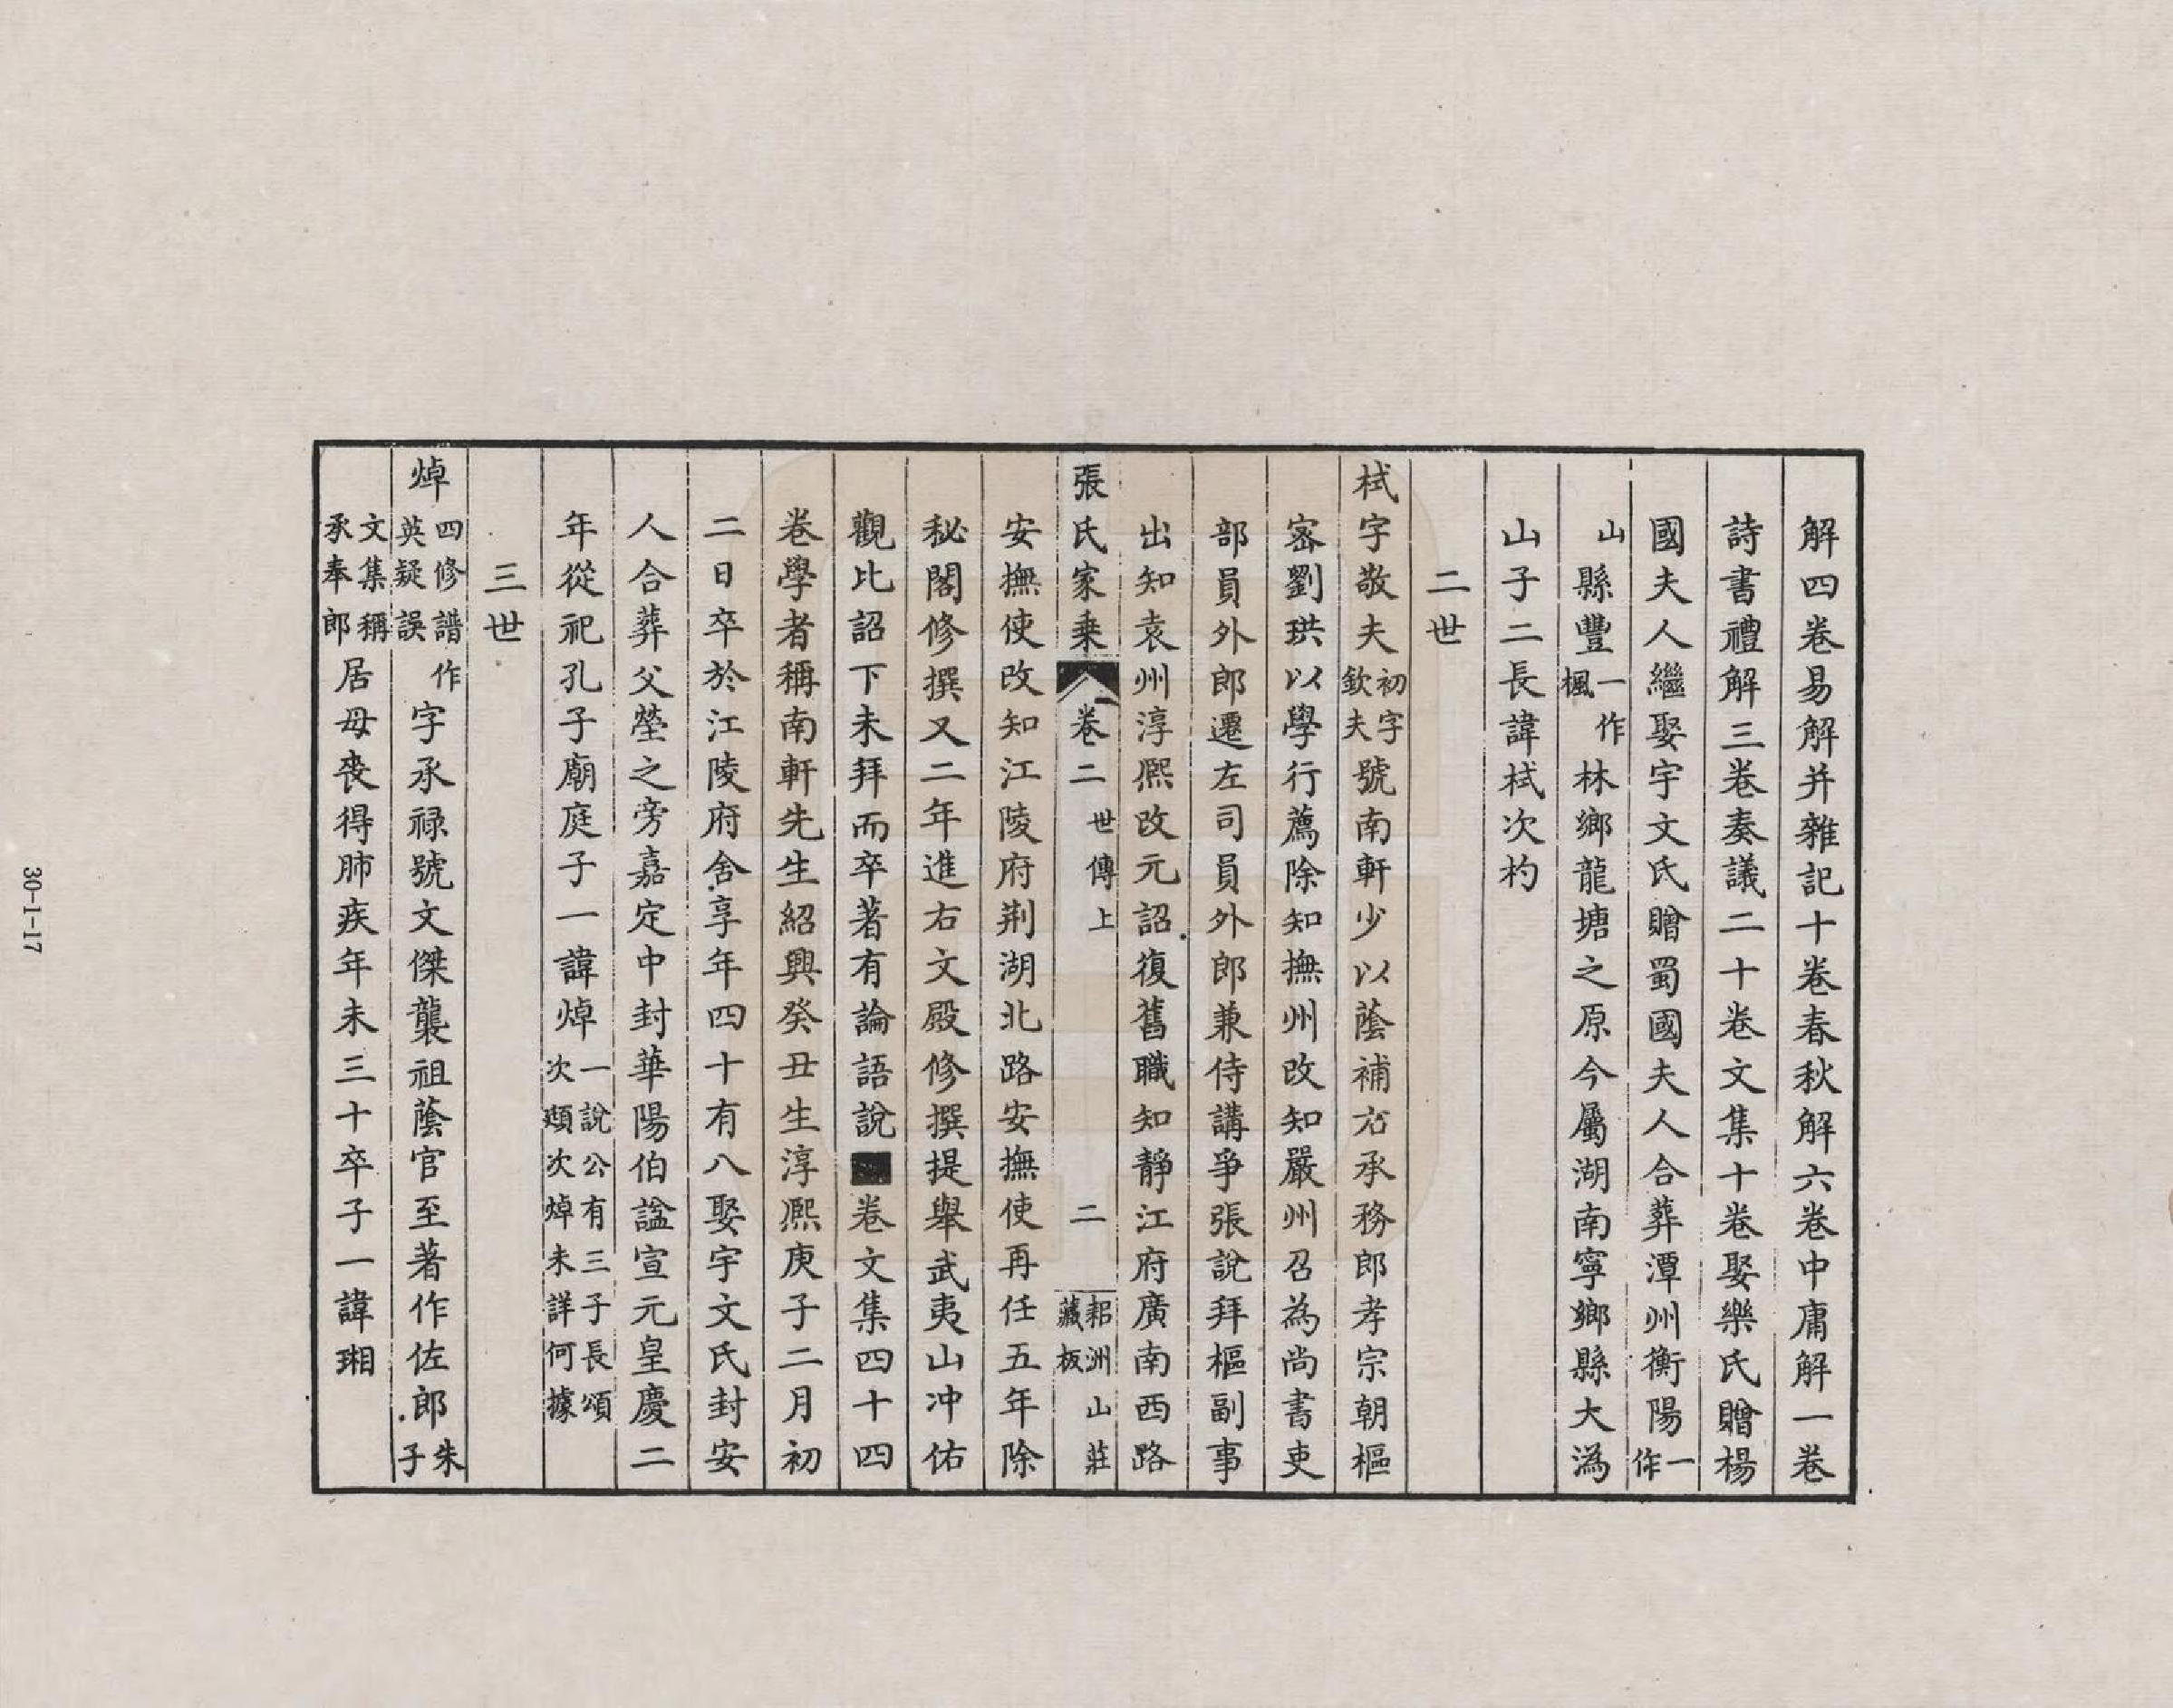 解四卷易解并雜記十卷春秋解六卷中庸解一卷
詩書禮解三卷奏議二十卷文集十卷娶樂氏贈楊
國夫人繼娶宇文氏贈蜀國夫人合葬潭州衡陽一作
山縣豐一作楓林鄉龍塘之原今屬湖南寧鄉縣大溈
山子二長諱栻次杓
二世
栻字敬夫初字欽夫號南軒少以蔭補右承務郎孝宗朝樞
密劉珙以學行薦除知撫州改知嚴州召為尚書吏
部員外郎遷左司員外郎兼侍講爭張說拜樞副事
出知袁州淳熙改元詔復舊職知靜江府廣南西路
張氏家乗 卷二 世傳上 二 耜洲山莊藏板
安撫使改知江陵府荆湖北路安撫使再任五年除
秘閣修撰又二年進右文殿修撰提舉武夷山冲佑
觀比詔下未拜而卒著有論語說■卷文集四十四
卷學者稱南軒先生紹興癸丑生淳熙庚子二月初
二日卒於江陵府舍享年四十有八娶宇文氏封安
人合葬父塋之旁嘉定中封華陽伯諡宣元皇慶二
年從祀孔子廟庭子一諱焯一說公有三子長頌次熲次焯未詳何據
三世
焯四修譜作英疑誤字承祿號文傑襲祖蔭官至著作佐郎朱子
文集稱承奉郎居母喪得肺疾年未三十卒子一諱琱
30-1-17